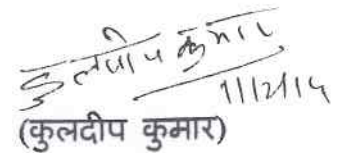 कुलदीप कुमार
1/12/14
(कुलदीप कुमार)